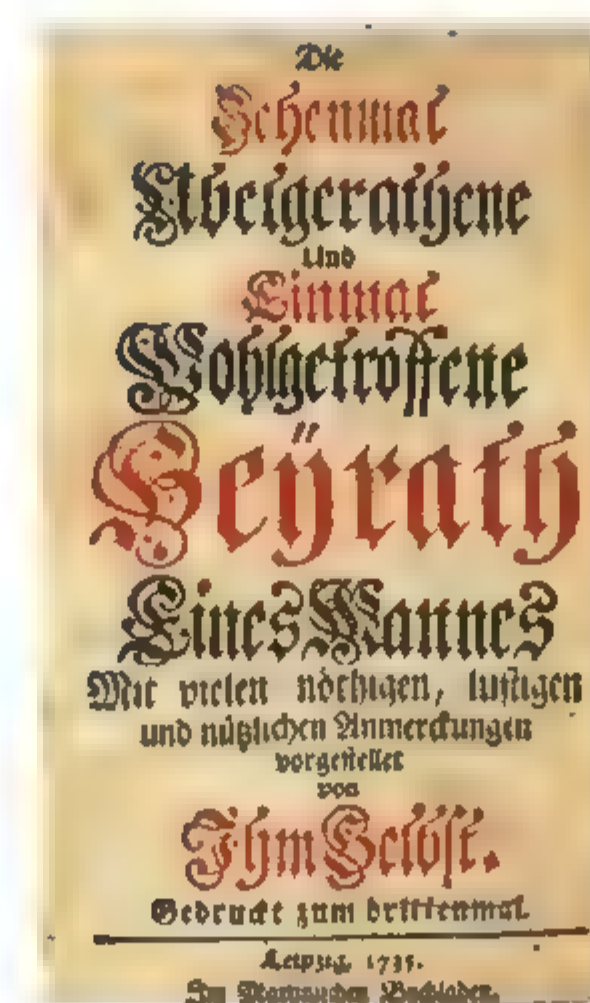 Die
Zehenmal
Übelgerathene
Und
Einmal
Wohlgetroffene
Heÿrath
Eines Mannes
Mit vielen nöthigen, lustigen
und nützlichen Anmerckungen
vorgestellet
von
Ihm Selbst.
Gedruckt zum drittenmal.
Leipzig, 1735.
Buchladen.